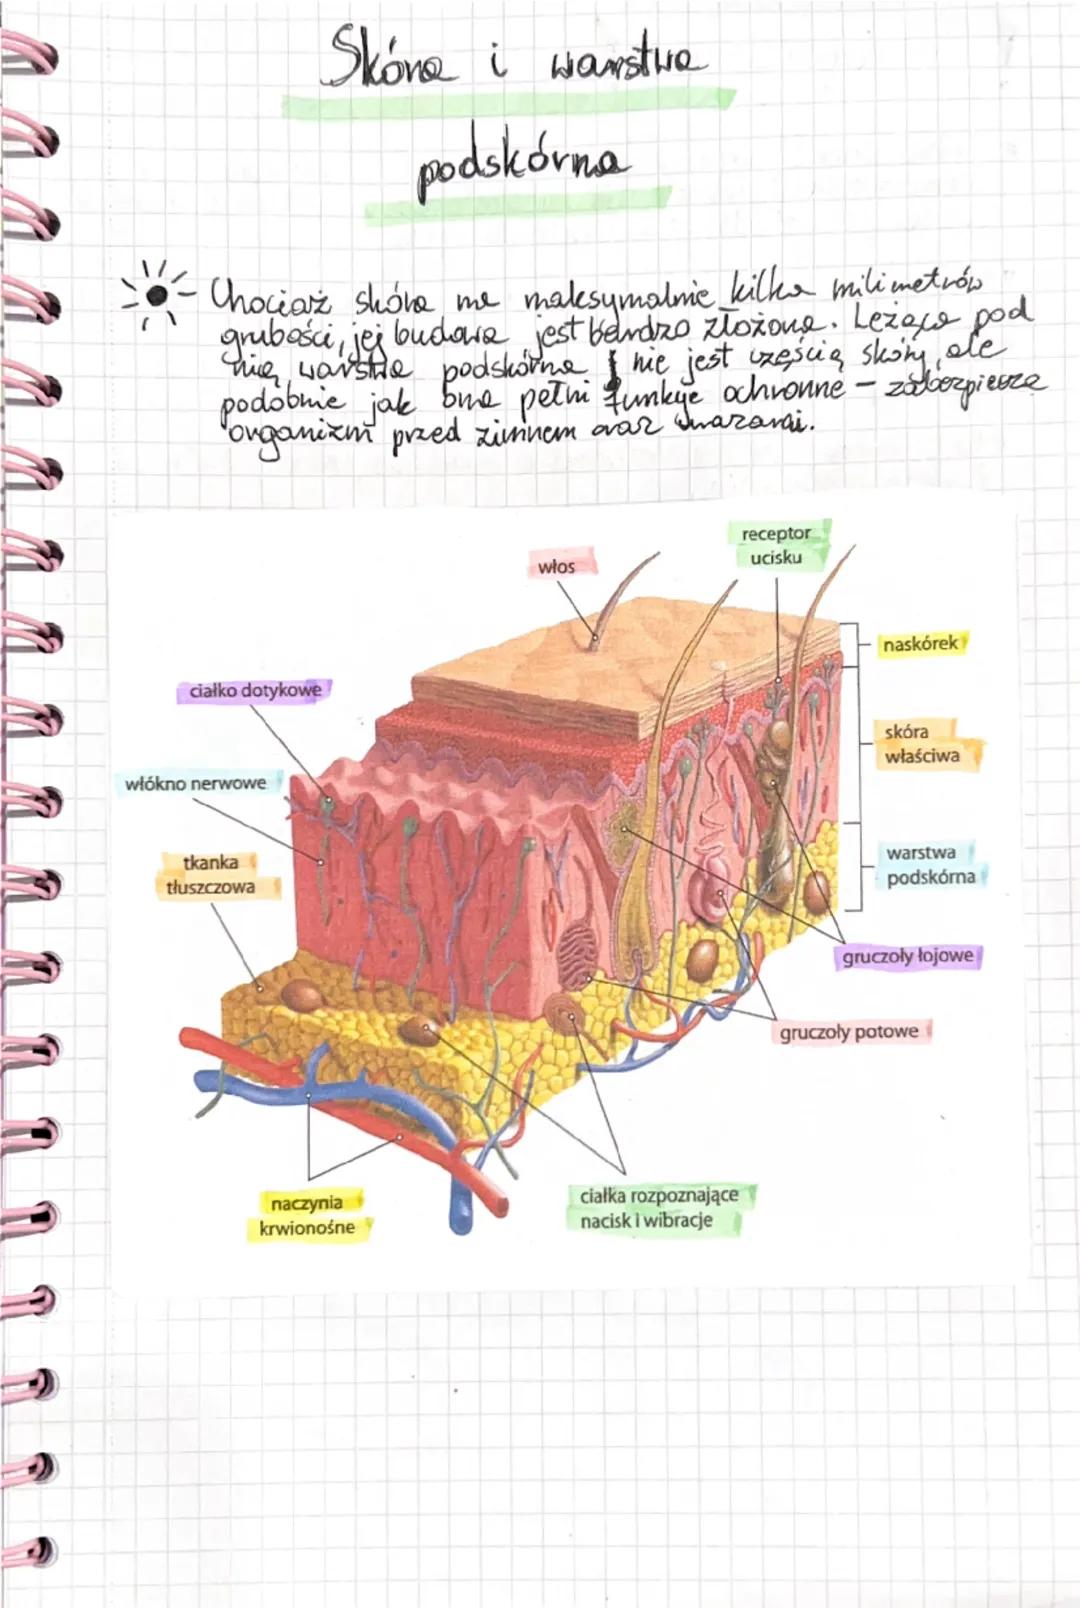 Skóra i warstwa
podskórna
Chociaż skóra ma maksymalnie kilka milimetrów
grubości, jej budowa jest bardzo złożona. Leżąca pod
nią warstwa podskórna nie jest częścią skóry, ale
podobnie jak ona pełni funkcje ochronne – zabezpiecza
organizm przed zimnem oraz urazami.
receptor
ucisku
włos
naskórek
ciałko dotykowe
skóra
właściwa
włókno nerwowe
tkanka
tłuszczowa
warstwa
podskórna
gruczoły łojowe
gruczoły potowe
naczynia
krwionośne
ciałka rozpoznające
nacisk i wibracje